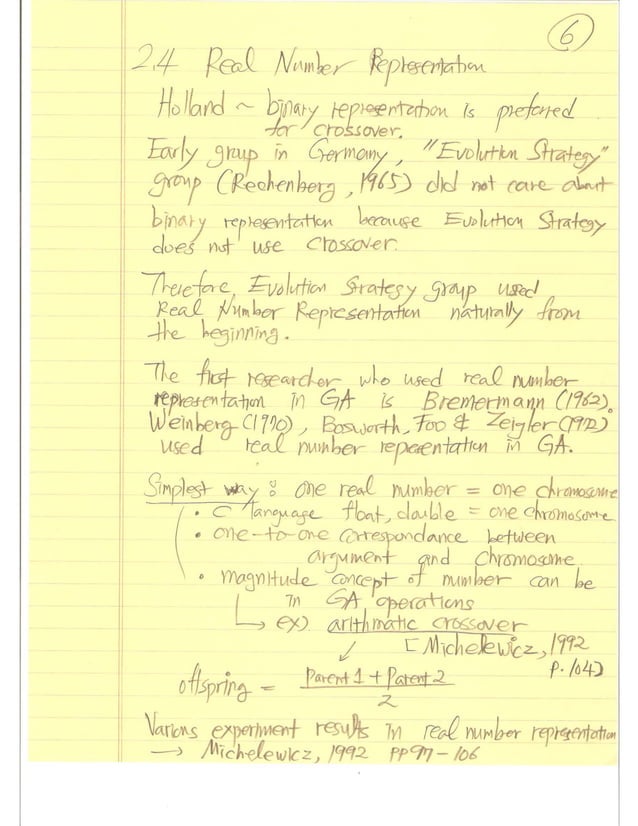 6
2.4 Real Number Representation
Holland ~ binary representation is preferred
for crossover.
Early group in Germany, "Evolution Strategy"
group (Rechenberg, 1965) did not care about
binary representation because Evolution Strategy
does not use crossover.
Therefore, Evolution Strategy group used
Real Number Representation naturally from
the beginning.
The first researcher who used real number
representation in GA is Bremermann (1962).
Weinberg (1970), Bosworth, Foo & Zeigler (1972)
used real number repesentation in GA.
Simplest way : one real number = one chromosome
• C language float, double = one chromosome
• one-to-one correspondance between
argument and chromosome
• magnitude concept of number can be
in GA operations
→ ex) arithmatic crossover
[Michelewicz, 1992
P. 104)
offspring = Parent 1 + Parent 2
2
Various experiment results in real number representation
→ Michelewicz, 1992 PP 97-106